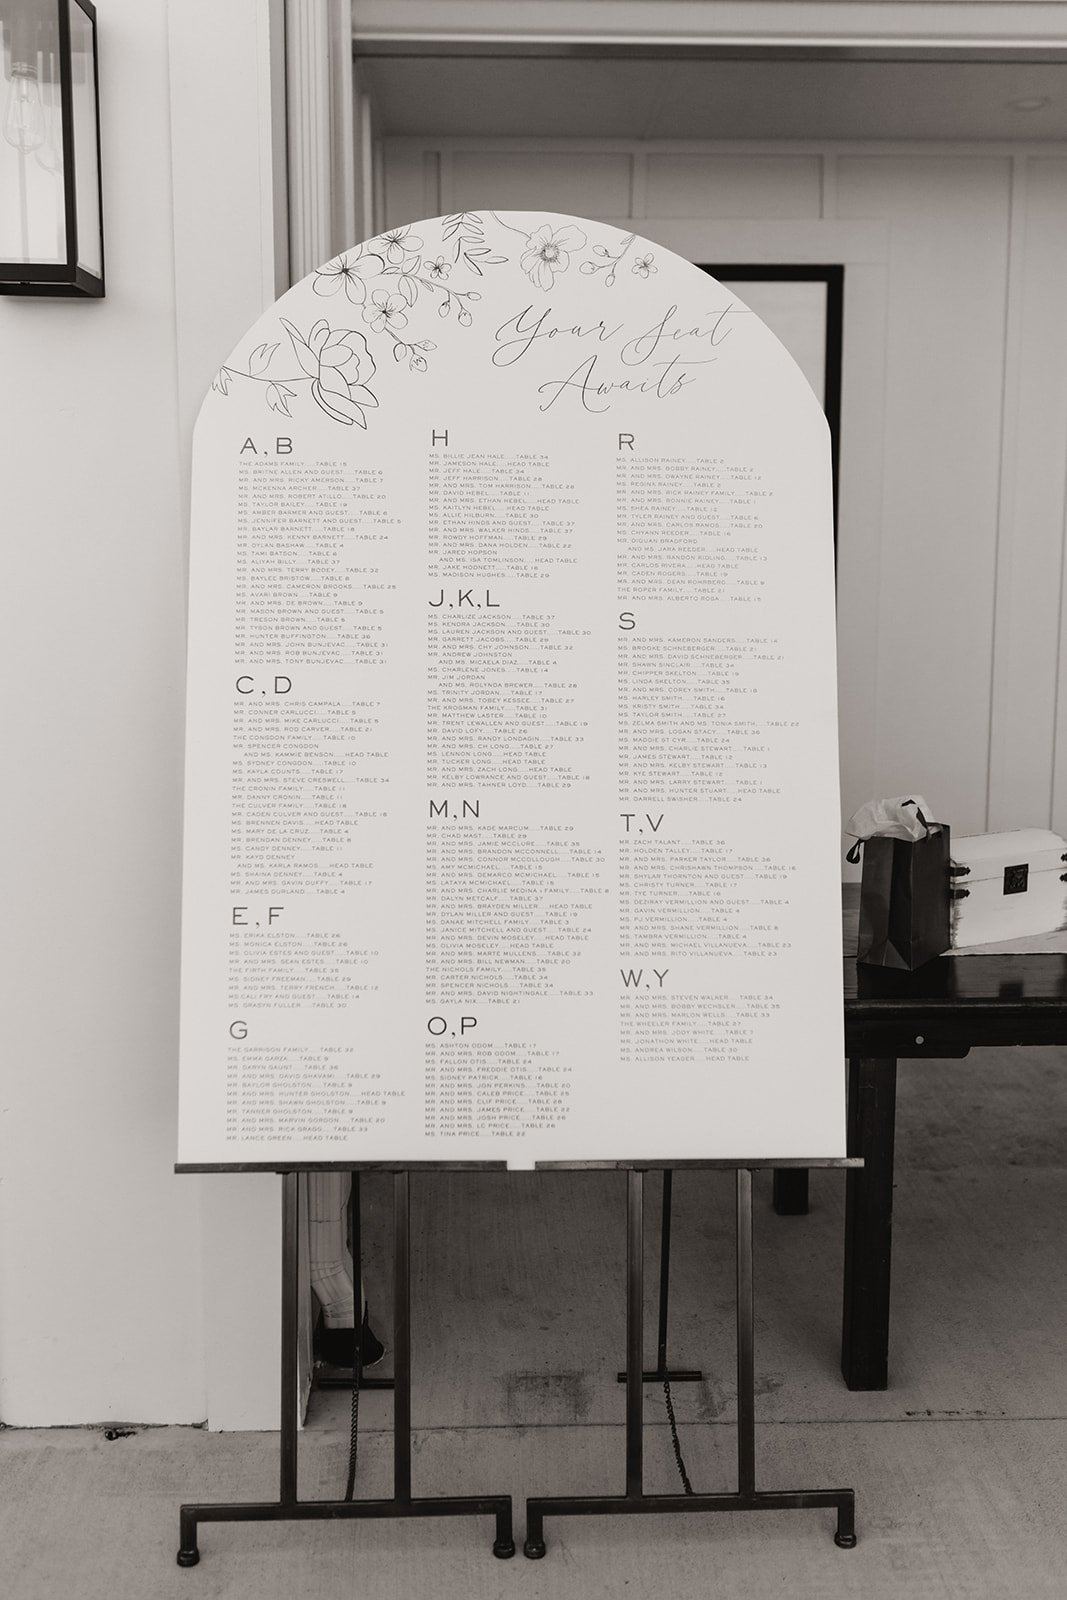 Your Seat
Awaits
A,B
THE ADAMS FAMILY.....TABLE 15
MS. BRITNE ALLEN AND GUEST.....TABLE 6
MR. AND MRS. RICKY AMERSON.....TABLE 7
MS. MCKENNA ARCHER.....TABLE 37
MR. AND MRS. ROBERT ATILLO.....TABLE 20
MS. TAYLOR BAILEY.....TABLE 19
MS. AMBER BARMER AND GUEST.....TABLE 6
MS. JENNIFER BARNETT AND GUEST.....TABLE 5
MR. BAYLAR BARNETT.....TABLE 18
MR. AND MRS. KENNY BARNETT.....TABLE 24
MR. DYLAN BASHAW.....TABLE 4
MS. TAMI BATSON.....TABLE 6
MS. ALIYAH BILLY.....TABLE 37
MR. AND MRS. TERRY BODEY.....TABLE 32
MS. BAYLEE BRISTOW.....TABLE 8
MR. AND MRS. CAMERON BROOKS.....TABLE 25
MS. AVARI BROWN.....TABLE 9
MR. AND MRS. DE BROWN.....TABLE 9
MR. MASON BROWN AND GUEST.....TABLE 5
MR. TRESON BROWN.....TABLE 5
MR. TYSON BROWN AND GUEST.....TABLE 5
MR. HUNTER BUFFINGTON.....TABLE 36
MR. AND MRS. JOHN BUNJEVAC.....TABLE 31
MR. AND MRS. ROB BUNJEVAC.....TABLE 31
MR. AND MRS. TONY BUNJEVAC.....TABLE 31
C,D
MR. AND MRS. CHRIS CAMPALA.....TABLE 7
MR. CONNER CARLUCCI.....TABLE 5
MR. AND MRS. MIKE CARLUCCI.....TABLE 5
MR. AND MRS. ROD CARVER.....TABLE 21
THE CONGDON FAMILY.....TABLE 10
MR. SPENCER CONGDON
AND MS. KAMMIE BENSON.....HEAD TABLE
MS. SYDNEY CONGDON.....TABLE 10
MS. KAYLA COUNTS.....TABLE 17
MR. AND MRS. STEVE CRESWELL.....TABLE 34
THE CRONIN FAMILY.....TABLE 11
MR. DANNY CRONIN.....TABLE 11
THE CULVER FAMILY.....TABLE 18
MR. CADEN CULVER AND GUEST.....TABLE 18
MS. BRENNEN DAVIS.....HEAD TABLE
MS. MARY DE LA CRUZ.....TABLE 4
MR. BRENDAN DENNEY.....TABLE 8
MS. CANDY DENNEY.....TABLE 11
MR. KAYD DENNEY
AND MS. KARLA RAMOS.....HEAD TABLE
MS. SHAINA DENNEY.....TABLE 4
MR. AND MRS. GAVIN DUFFY.....TABLE 17
MR. JAMES DURLAND.....TABLE 4
E,F
MS. ERIKA ELSTON.....TABLE 26
MS. MONICA ELSTON.....TABLE 26
MS. OLIVIA ESTES AND GUEST.....TABLE 10
MR. AND MRS. SEAN ESTES.....TABLE 10
THE FIRTH FAMILY.....TABLE 35
MS. SIDNEY FREEMAN.....TABLE 29
MR. AND MRS. TERRY FRENCH.....TABLE 12
MS. CALI FRY AND GUEST.....TABLE 14
MS. GRASYN FULLER.....TABLE 30
G
THE GARRISON FAMILY.....TABLE 32
MS. EMMA GARZA.....TABLE 9
MR. DARYN GAUNT.....TABLE 36
MR. AND MRS. DAVID GHAVAMI.....TABLE 29
MR. BAYLOR GHOLSTON.....TABLE 9
MR. AND MRS. HUNTER GHOLSTON.....HEAD TABLE
MR. AND MRS. SHAWN GHOLSTON.....TABLE 9
MR. TANNER GHOLSTON.....TABLE 9
MR. AND MRS. MARVIN GORDON.....TABLE 20
MR. AND MRS. RICK GRAGG.....TABLE 33
MR. LANCE GREEN.....HEAD TABLE
H
MS. BILLIE JEAN HALE.....TABLE 34
MR. JAMESON HALE.....HEAD TABLE
MR. JEFF HALE.....TABLE 34
MR. JEFF HARRISON.....TABLE 28
MR. AND MRS. TOM HARRISON.....TABLE 28
MR. DAVID HEBEL.....TABLE 11
MR. AND MRS. ETHAN HEBEL.....HEAD TABLE
MS. KAITLYN HEBEL.....HEAD TABLE
MS. ALLIE HILBURN.....TABLE 30
MR. ETHAN HINDS AND GUEST.....TABLE 37
MR. AND MRS. WALKER HINDS.....TABLE 37
MR. ROWDY HOFFMAN.....TABLE 29
MR. AND MRS. DANA HOLDEN.....TABLE 22
MR. JARED HOPSON
AND MS. ISA TOMLINSON.....HEAD TABLE
MR. JAKE HODNETT.....TABLE 16
MS. MADISON HUGHES.....TABLE 29
J,K,L
MS. CHARLIZE JACKSON.....TABLE 37
MS. KENDRA JACKSON.....TABLE 30
MS. LAUREN JACKSON AND GUEST.....TABLE 30
MR. GARRETT JACOBS.....TABLE 29
MR. AND MRS. CHY JOHNSON.....TABLE 32
MR. ANDREW JOHNSTON
AND MS. MICAELA DIAZ.....TABLE 4
MS. CHARLENE JONES.....TABLE 14
MR. JIM JORDAN
AND MS. ROLYNDA BREWER.....TABLE 28
MS. TRINITY JORDAN.....TABLE 17
MR. AND MRS. TOBEY KESSEE.....TABLE 27
THE KROGMAN FAMILY.....TABLE 31
MR. MATTHEW LASTER.....TABLE 10
MR. TRENT LEWALLEN AND GUEST.....TABLE 19
MR. DAVID LOFY.....TABLE 26
MR. AND MRS. RANDY LONDAGIN.....TABLE 33
MR. AND MRS. CH LONG.....TABLE 27
MR. LENNON LONG.....HEAD TABLE
MR. TUCKER LONG.....HEAD TABLE
MR. AND MRS. ZACH LONG.....HEAD TABLE
MR. KELBY LOWRANCE AND GUEST.....TABLE 18
MR. AND MRS. TAHNER LOYD.....TABLE 29
M,N
MR. AND MRS. KADE MARCUM.....TABLE 29
MR. CHAD MAST.....TABLE 29
MR. AND MRS. JAMIE MCCLURE.....TABLE 35
MR. AND MRS. BRANDON MCCONNELL.....TABLE 14
MR. AND MRS. CONNOR MCCOLLOUGH.....TABLE 30
MS. AMY MCMICHAEL.....TABLE 15
MR. AND MRS. DEMARCO MCMICHAEL.....TABLE 15
MS. LATAYA MCMICHAEL.....TABLE 15
MR. AND MRS. CHARLIE MEDINA & FAMILY.....TABLE 8
MR. DALYN METCALF.....TABLE 37
MR. AND MRS. BRAYDEN MILLER.....HEAD TABLE
MR. DYLAN MILLER AND GUEST.....TABLE 19
MS. DANAE MITCHELL FAMILY.....TABLE 3
MS. JANICE MITCHELL AND GUEST.....TABLE 24
MR. AND MRS. DEVIN MOSELEY.....HEAD TABLE
MS. OLIVIA MOSELEY.....HEAD TABLE
MR. AND MRS. MARTE MULLENS.....TABLE 32
MR. AND MRS. BILL NEWMAN.....TABLE 20
THE NICHOLS FAMILY.....TABLE 35
MR. CARTER NICHOLS.....TABLE 34
MR. SPENCER NICHOLS.....TABLE 34
MR. AND MRS. DAVID NIGHTINGALE.....TABLE 33
MS. GAYLA NIX.....TABLE 21
O,P
MS. ASHTON ODOM.....TABLE 17
MR. AND MRS. ROB ODOM.....TABLE 17
MS. FALLON OTIS.....TABLE 24
MR. AND MRS. FREDDIE OTIS.....TABLE 24
MS. SIDNEY PATRICK.....TABLE 16
MR. AND MRS. JON PERKINS.....TABLE 20
MR. AND MRS. CALEB PRICE.....TABLE 25
MR. AND MRS. CLIF PRICE.....TABLE 28
MR. AND MRS. JAMES PRICE.....TABLE 22
MR. AND MRS. JOSH PRICE.....TABLE 26
MR. AND MRS. LC PRICE.....TABLE 26
MS. TINA PRICE.....TABLE 22
R
MS. ALLISON RAINEY.....TABLE 2
MR. AND MRS. BOBBY RAINEY.....TABLE 2
MR. AND MRS. DWAYNE RAINEY.....TABLE 12
MS. REGINA RAINEY.....TABLE 2
MR. AND MRS. RICK RAINEY FAMILY.....TABLE 2
MR. AND MRS. RONNIE RAINEY.....TABLE 1
MS. SHEA RAINEY.....TABLE 12
MR. TYLER RAINEY AND GUEST.....TABLE 6
MR. AND MRS. CARLOS RAMOS.....TABLE 20
MS. CHYANN REEDER.....TABLE 16
MR. DIQUAN BRADFORD
AND MS. JARA REEDER.....HEAD TABLE
MR. AND MRS. RANDON RIDLING.....TABLE 13
MR. CARLOS RIVERA.....HEAD TABLE
MR. CADEN ROGERS.....TABLE 19
MR. AND MRS. DEAN ROHRBERG.....TABLE 9
THE ROPER FAMILY.....TABLE 21
MR. AND MRS. ALBERTO ROSA.....TABLE 15
S
MR. AND MRS. KAMERON SANDERS.....TABLE 14
MS. BROOKE SCHNEBERGER.....TABLE 21
MR. AND MRS. DAVID SCHNEBERGER.....TABLE 21
MR. SHAWN SINCLAIR.....TABLE 34
MR. CHIPPER SKELTON.....TABLE 19
MS. LINDA SKELTON.....TABLE 35
MR. AND MRS. COREY SMITH.....TABLE 18
MS. HARLEY SMITH.....TABLE 16
MS. KRISTY SMITH.....TABLE 34
MS. TAYLOR SMITH.....TABLE 27
MS. ZELMA SMITH AND MS. TONIA SMITH.....TABLE 22
MR. AND MRS. LOGAN STACY.....TABLE 36
MS. MADDIE ST CYR.....TABLE 24
MR. AND MRS. CHARLIE STEWART.....TABLE 1
MR. JAMES STEWART.....TABLE 12
MR. AND MRS. KELBY STEWART.....TABLE 13
MR. KYE STEWART.....TABLE 12
MR. AND MRS. LARRY STEWART.....TABLE 1
MR. AND MRS. HUNTER STUART.....HEAD TABLE
MR. DARRELL SWISHER.....TABLE 24
T,V
MR. ZACH TALANT.....TABLE 36
MR. HOLDEN TALLEY.....TABLE 17
MR. AND MRS. PARKER TAYLOR.....TABLE 36
MR. AND MRS. CHRISHAWN THOMPSON.....TABLE 16
MR. SHYLAR THORNTON AND GUEST.....TABLE 19
MS. CHRISTY TURNER.....TABLE 17
MR. TYE TURNER.....TABLE 16
MS. DEZIRAY VERMILLION AND GUEST.....TABLE 4
MR. GAVIN VERMILLION.....TABLE 4
MS. PJ VERMILLION.....TABLE 4
MR. AND MRS. SHANE VERMILLION.....TABLE 8
MS. TAMBRA VERMILLION.....TABLE 4
MR. AND MRS. MICHAEL VILLANUEVA.....TABLE 23
MR. RITO VILLANUEVA.....TABLE 23
W,Y
MR. AND MRS. STEVEN WALKER.....TABLE 34
MR. AND MRS. BOBBY WECHSLER.....TABLE 35
MR. AND MRS. MARLON WELLS.....TABLE 33
THE WHEELER FAMILY.....TABLE 27
MR. AND MRS. JODY WHITE.....TABLE 7
MR. JONATHON WHITE.....HEAD TABLE
MS. ANDREA WILSON.....TABLE 30
MS. ALLISON YEAGER.....HEAD TABLE